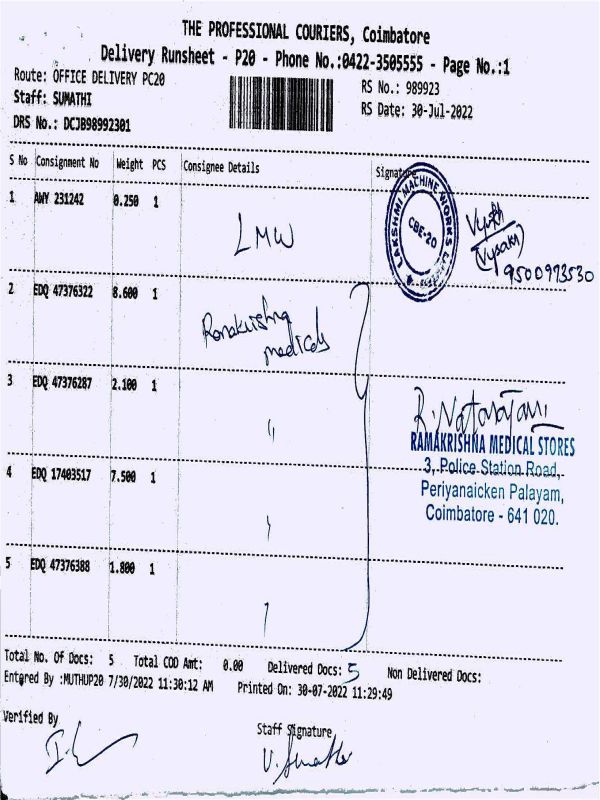 THE PROFESSIONAL COURIERS, Coimbatore
Delivery Runsheet - P20 - Phone No.:0422-3505555 - Page No.:1
Route: OFFICE DELIVERY PC20
RS No.: 989923
Staff: SUMATHI
RS Date: 30-Jul-2022
DRS No.: DCJB98992301
S No Consignment No Weight PCS Consignee Details Signature
1 AWY 231242 0.250 1
LMW
LAKSHMI MACHINE WORKS
CBE-20
(Vysakh)
9500973530
2 EDQ 47376322 8.600 1
Ramakrishna
medicals
3 EDQ 47376287 2.100 1
"
R. Natarajan
RAMAKRISHNA MEDICAL STORES
3, Police Station Road,
Periyanaicken Palayam,
Coimbatore - 641 020.
4 EDQ 17403517 7.500 1
5 EDQ 47376388 1.800 1
Total No. Of Docs: 5 Total COD Amt: 0.00 Delivered Docs: 5 Non Delivered Docs:
Entered By :MUTHUP20 7/30/2022 11:30:12 AM Printed On: 30-07-2022 11:29:49
Verified By
Staff Signature